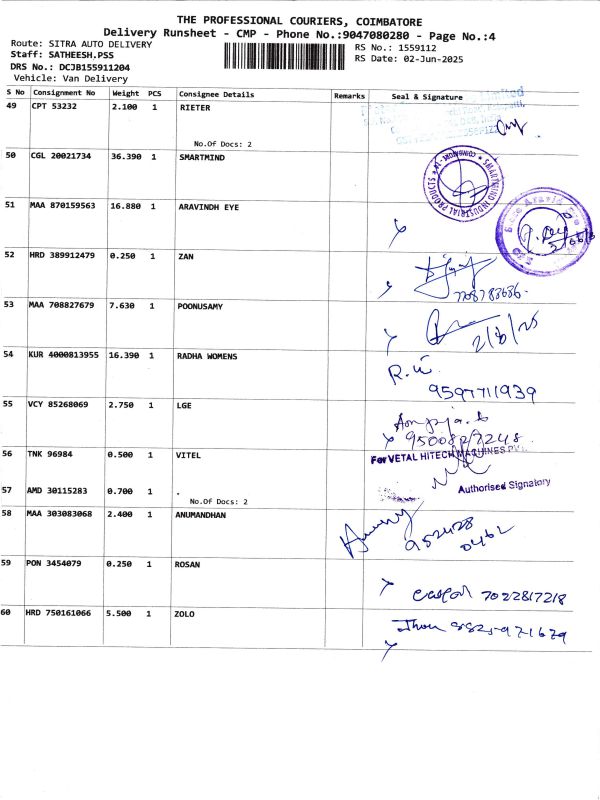 THE PROFESSIONAL COURIERS, COIMBATORE
Delivery Runsheet - CMP - Phone No.:9047080280 - Page No.:4
Route: SITRA AUTO DELIVERY
RS No.: 1559112
Staff: SATHEESH.PSS
RS Date: 02-Jun-2025
DRS No.: DCJB155911204
Vehicle: Van Delivery
S No Consignment No Weight PCS Consignee Details Remarks Seal & Signature
49 CPT 53232 2.100 1 RIETER
No.Of Docs: 2
50 CGL 20021734 36.390 1 SMARTMIND
SMARTMIND INDUSTRIAL PRODUCTS
51 MAA 870159563 16.880 1 ARAVINDH EYE
52 HRD 389912479 0.250 1 ZAN
7708783686.
53 MAA 708827679 7.630 1 POONUSAMY
2/6/25
54 KUR 4000813955 16.390 1 RADHA WOMENS
R.
9597711939
55 VCY 85268069 2.750 1 LGE
56 TNK 96984 0.500 1 VITEL
For VETAL HITECH MACHINES
57 AMD 30115283 0.700 1 .
Authorised Signatory
No.Of Docs: 2
58 MAA 303083068 2.400 1 ANUMANDHAN
952428
0462
59 PON 3454079 0.250 1 ROSAN
7022817218
60 HRD 750161066 5.500 1 ZOLO